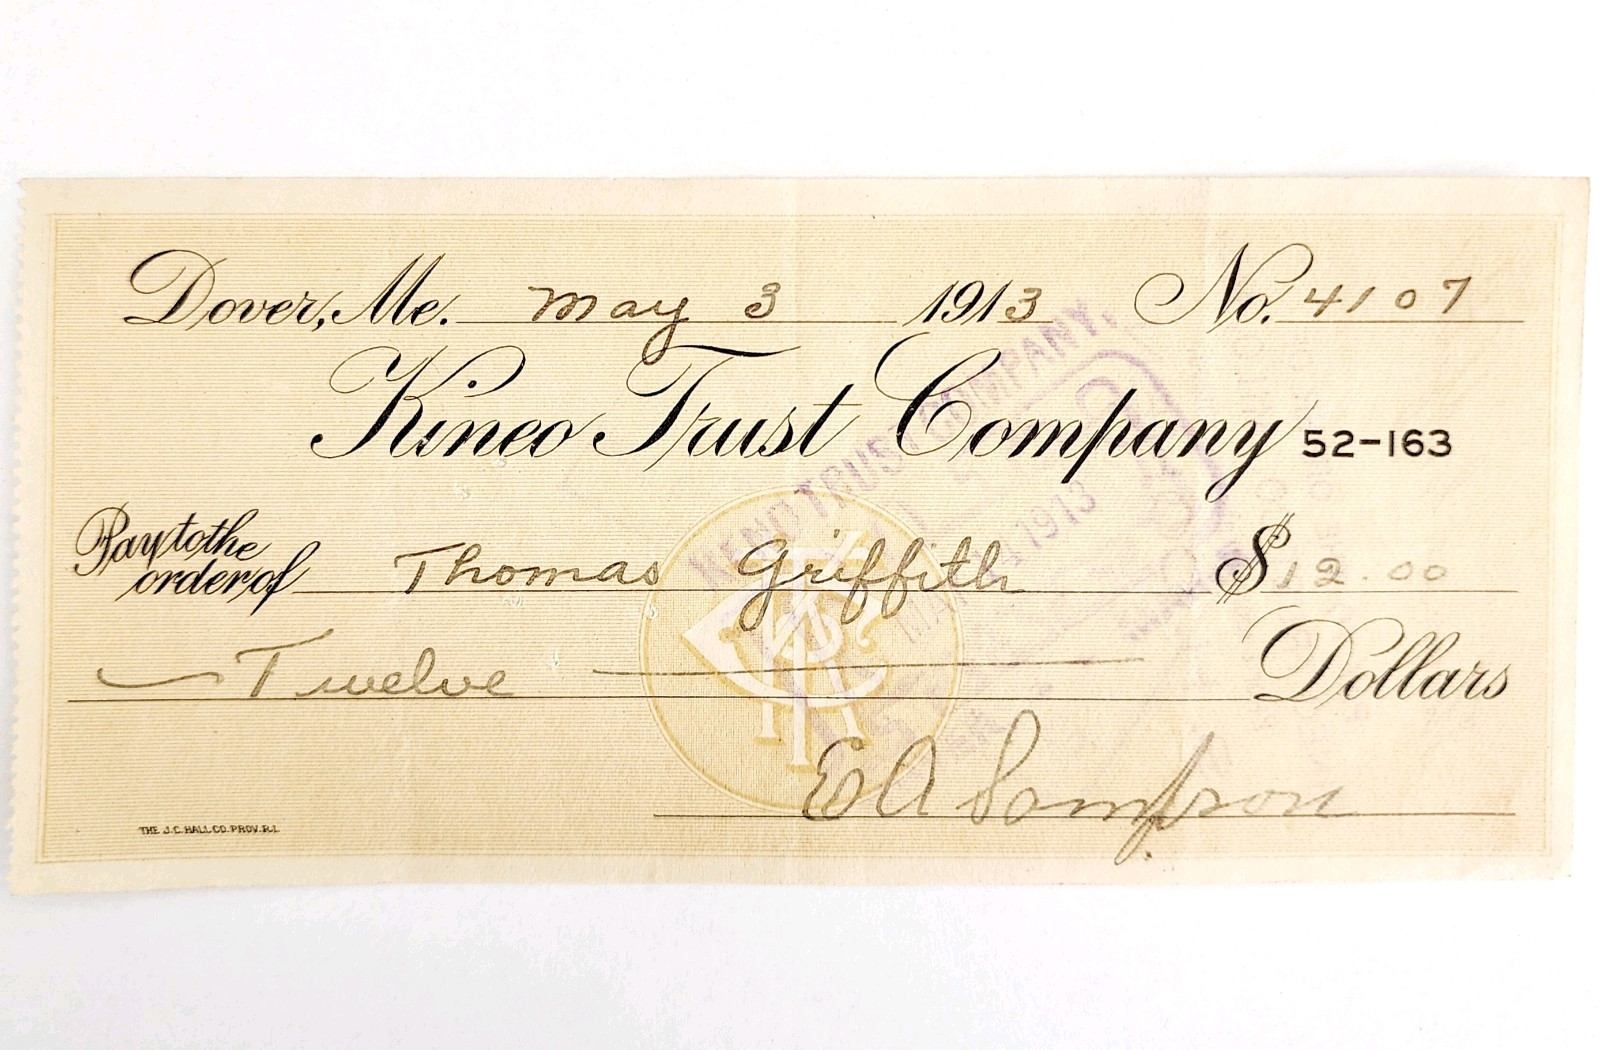 Dover, Me. May 3 1913 No. 4107
Kineo Trust Company 52-163
Pay to the
order of Thomas Griffith $12.00
Twelve Dollars
E A Sampson
THE J.C. HALL CO. PROV. R.I.
KINEO TRUST COMPANY,
1913